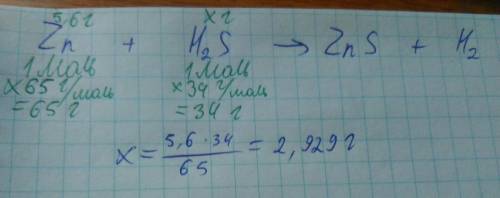 5,6г x г
Zn + H₂S → ZnS + H₂
1 моль 1 моль
×65 г/моль ×34 г/моль
=65 г =34 г
x = 5,6·34/65 = 2,929 г